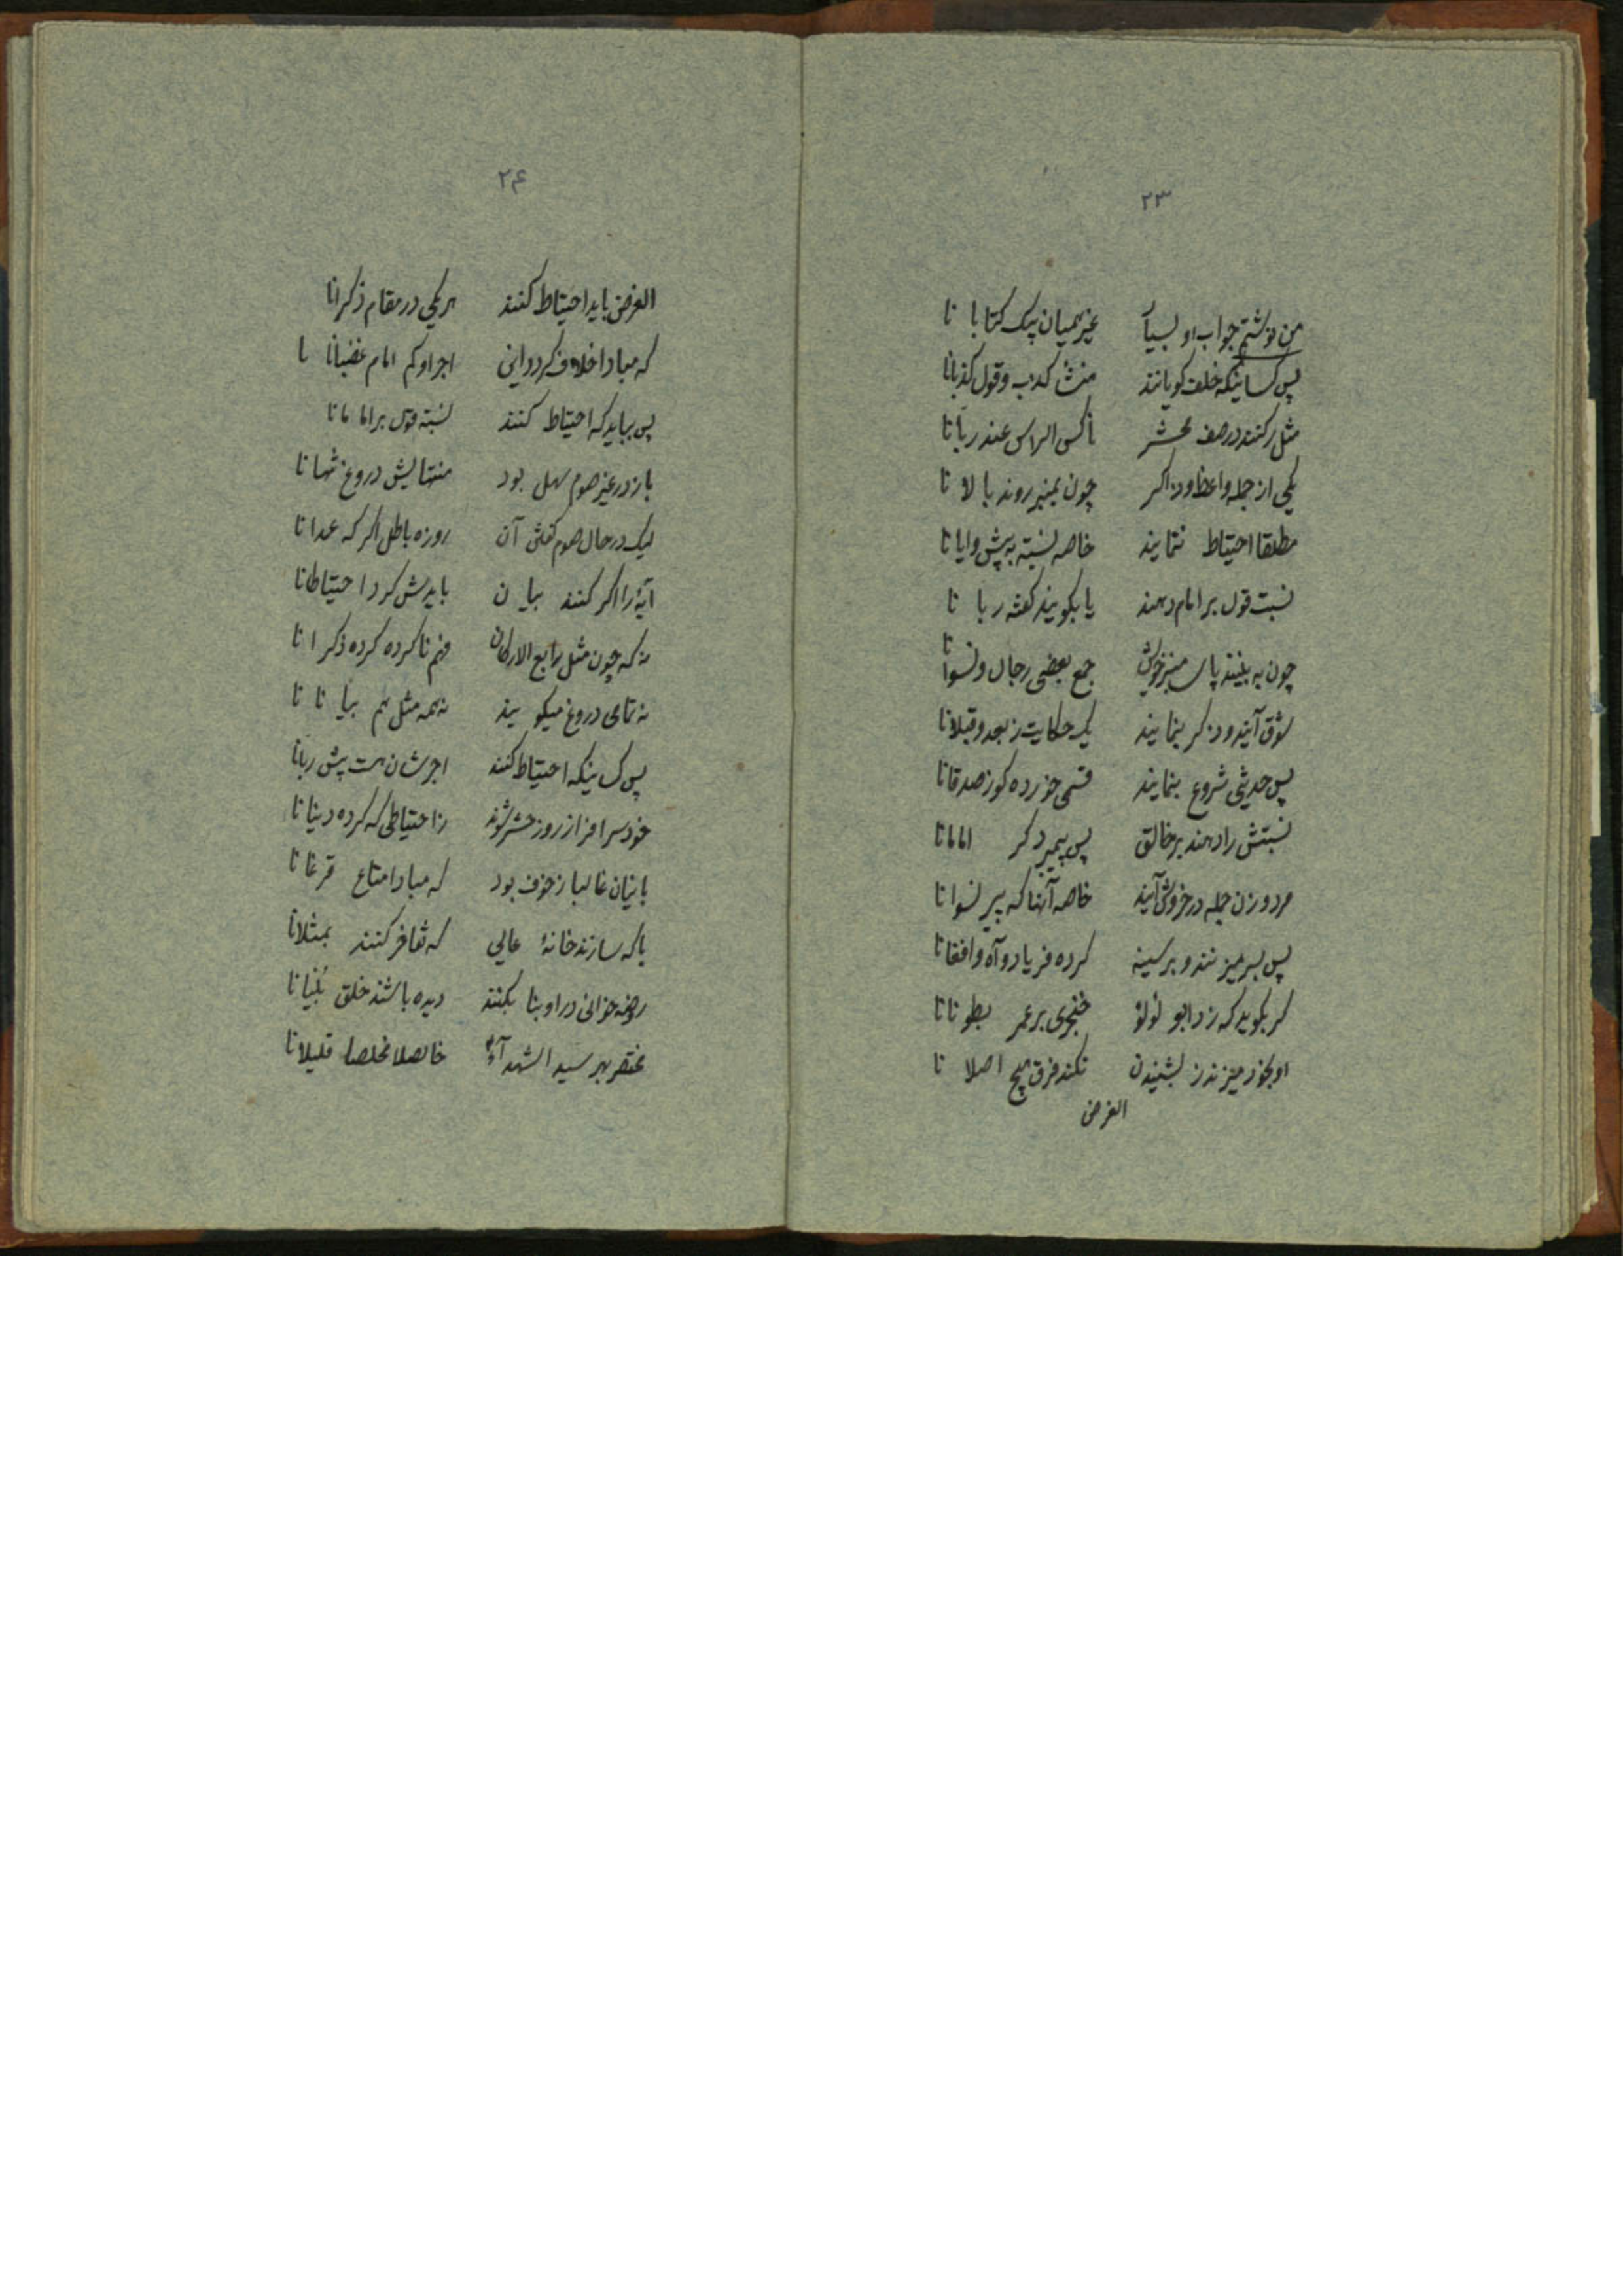 ۲۳
من نوشتم جواب او بسیا غیر همیان پیک کتابا نا
پس کسانیکه خلف گویانند منشأ کذب و قول کذبانا
مثل رکنند در صف محشر ناکس الراس عند ربانا
یکی از جمله واعظ و ذاکر چون بمنبر روند بالا نا
مطلقا احتیاط ننمایند خاصه نسبته به پیش وایانا
نسبت قول بر امام دهند یا بگویند گفته ربا نا
چون به بینند پای منبر خویش جمع بعضی رجال و نسوانا
شوق آیند و ذکر بنمایند یک حکایت ز بعد و قبلانا
پس حدیثی شروع بنمایند قسمی خورده کوز صدقانا
نسبتش را دهند بر خالق پس پیمبر دکر امامانا
مرد و زن جمله در خروش آیند خاصه آنها که پیر نسوانا
پس بسر میزنند و بر سینه کرده فریاد و آه و افغانا
کر بگوید که زد ابو لؤلؤ خنجری بر عمر بطونانا
او بخود میزند ز بشنیدن نکند فرق هیچ اصلا نا
الغرض
۲۴
الغرض باید احتیاط کنند هر یکی در مقام ذکرانا
که مبادا خلاف کردد این اجر او کم امام غضبانا
پس بباید که احتیاط کنند نسبته قول بر امامانا
باز در غیر صوم سهل بود منتهایش دروغ شهانا
لیک در حال صوم گفتن آن روزه باطل اکر که عمدانا
آیهٔ را اکر کنند بیان بایدش کرد احتیاطانا
نه که چون مثل رابع الارکان فهم ناکرده کرده ذکرانا
نه تمامی دروغ میکویند نه همه مثل هم بیانانا
پس کسانیکه احتیاط کنند اجرشان هست پیش ربانا
خود سرافراز روز حشر شوند ز احتیاطی که کرده دنیانا
بانیان غالبا ز خوف بود که مبادا متاع قرغانا
یا که سازند خانهٔ عالی که تفاخر کنند بمثلانا
روضه خوانی در او بنا بکنند دیده باشند خلق بنیانا
مختصر بهر سید الشهداء خالصلا مخلصا قلیلانا